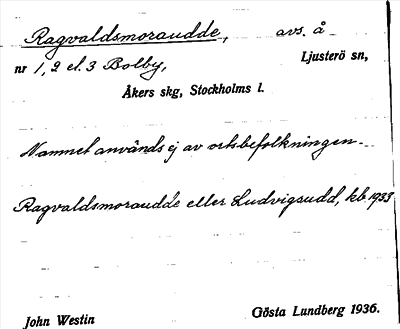 Ragvaldsmoraudde, avs. å
nr 1, 2 el. 3 Bolby, Ljusterö sn,
Åkers skg, Stockholms l.
Namnet används ej av ortsbefolkningen.
Ragvaldsmoraudde eller Ludvigsudd, kb 1933
John Westin Gösta Lundberg 1936.